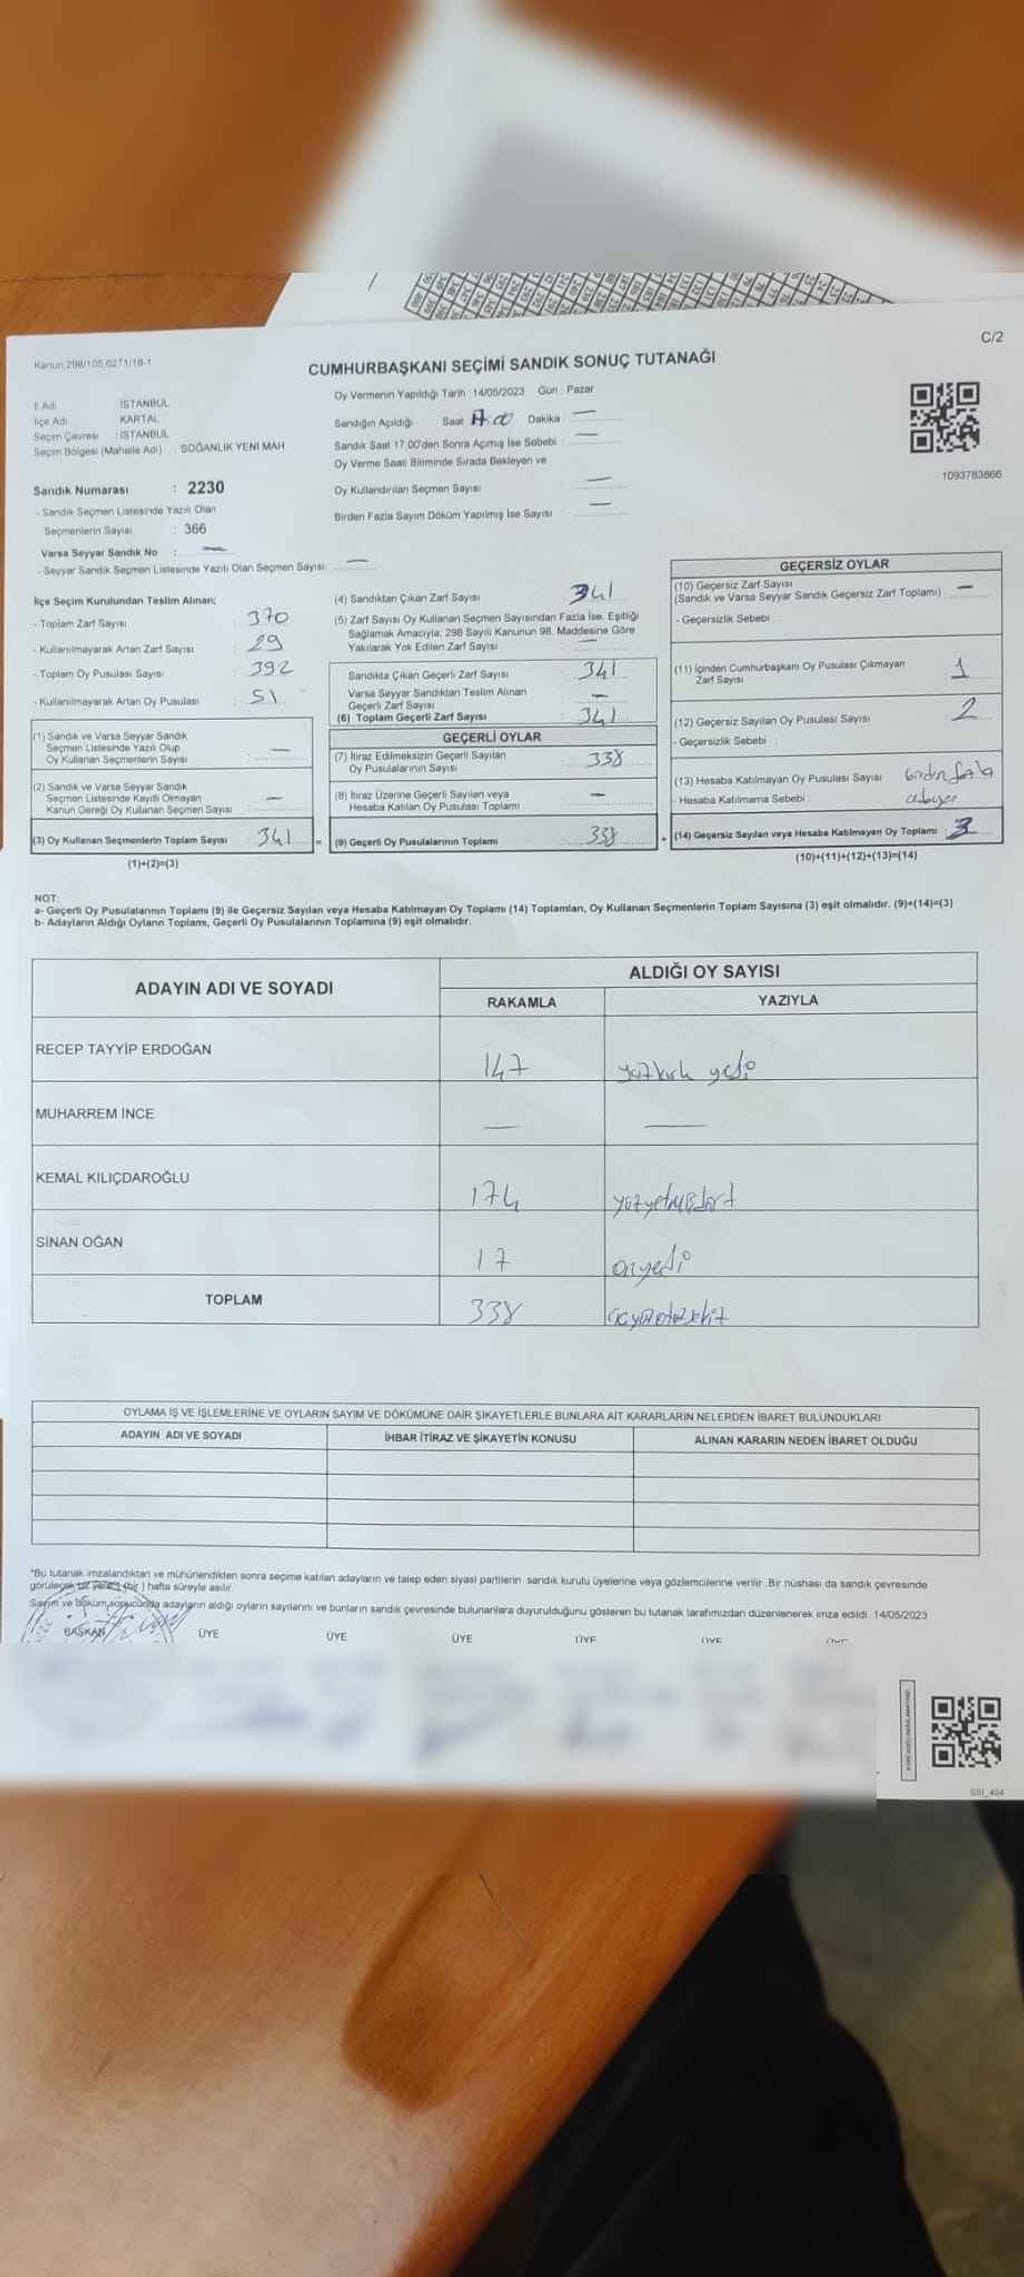 C/2
Kanun:298/105,6271/18-1
CUMHURBAŞKANI SEÇİMİ SANDIK SONUÇ TUTANAĞI
İl Adı : İSTANBUL
İlçe Adı : KARTAL
Seçim Çevresi : İSTANBUL
Seçim Bölgesi (Mahalle Adı) : SOĞANLIK YENİ MAH
Sandık Numarası : 2230
- Sandık Seçmen Listesinde Yazılı Olan
Seçmenlerin Sayısı : 366
Varsa Seyyar Sandık No : —
- Seyyar Sandık Seçmen Listesinde Yazılı Olan Seçmen Sayısı: —
Oy Vermenin Yapıldığı Tarih : 14/05/2023 Gün : Pazar
Sandığın Açıldığı Saat Dakika : —
Sandık Saat 17.00'den Sonra Açılmış İse Sebebi : —
Oy Verme Saati Bitiminde Sırada Bekleyen ve
Oy Kullandırılan Seçmen Sayısı : —
Birden Fazla Sayım Döküm Yapılmış İse Sayısı : —
1093783866
İlçe Seçim Kurulundan Teslim Alınan;
- Toplam Zarf Sayısı : 370
- Kullanılmayarak Artan Zarf Sayısı : 29
- Toplam Oy Pusulası Sayısı : 392
- Kullanılmayarak Artan Oy Pusulası : 51
(1) Sandık ve Varsa Seyyar Sandık
Seçmen Listesinde Yazılı Olup
Oy Kullanan Seçmenlerin Sayısı : —
(2) Sandık ve Varsa Seyyar Sandık
Seçmen Listesinde Kayıtlı Olmayan
Kanun Gereği Oy Kullanan Seçmen Sayısı : —
(3) Oy Kullanan Seçmenlerin Toplam Sayısı : 341
(1)+(2)=(3)
(4) Sandıktan Çıkan Zarf Sayısı : 341
(5) Zarf Sayısı Oy Kullanan Seçmen Sayısından Fazla İse, Eşitliği
Sağlamak Amacıyla, 298 Sayılı Kanunun 98. Maddesine Göre
Yakılarak Yok Edilen Zarf Sayısı : —
Sandıkta Çıkan Geçerli Zarf Sayısı : 341
Varsa Seyyar Sandıktan Teslim Alınan
Geçerli Zarf Sayısı : —
(6) Toplam Geçerli Zarf Sayısı : 341
GEÇERLİ OYLAR
(7) İtiraz Edilmeksizin Geçerli Sayılan
Oy Pusulalarının Sayısı : 338
(8) İtiraz Üzerine Geçerli Sayılan veya
Hesaba Katılan Oy Pusulası Toplamı : —
= (9) Geçerli Oy Pusulalarının Toplamı : 338
GEÇERSİZ OYLAR
(10) Geçersiz Zarf Sayısı
(Sandık ve Varsa Seyyar Sandık Geçersiz Zarf Toplamı) : —
- Geçersizlik Sebebi :
(11) İçinden Cumhurbaşkanı Oy Pusulası Çıkmayan
Zarf Sayısı : 1
(12) Geçersiz Sayılan Oy Pusulası Sayısı : 2
- Geçersizlik Sebebi :
(13) Hesaba Katılmayan Oy Pusulası Sayısı : birden fazla
- Hesaba Katılmama Sebebi :
+ (14) Geçersiz Sayılan veya Hesaba Katılmayan Oy Toplamı : 3
(10)+(11)+(12)+(13)=(14)
NOT:
a- Geçerli Oy Pusulalarının Toplamı (9) ile Geçersiz Sayılan veya Hesaba Katılmayan Oy Toplamı (14) Toplamları, Oy Kullanan Seçmenlerin Toplam Sayısına (3) eşit olmalıdır. (9)+(14)=(3)
b- Adayların Aldığı Oyların Toplamı, Geçerli Oy Pusulalarının Toplamına (9) eşit olmalıdır.
ADAYIN ADI VE SOYADI ALDIĞI OY SAYISI
RAKAMLA YAZIYLA
RECEP TAYYİP ERDOĞAN 147 yüzkırk yedi
MUHARREM İNCE — —
KEMAL KILIÇDAROĞLU 174 yüzyetmişdört
SİNAN OĞAN 17 onyedi
TOPLAM 338 üçyüzotuzsekiz
OYLAMA İŞ VE İŞLEMLERİNE VE OYLARIN SAYIM VE DÖKÜMÜNE DAİR ŞİKAYETLERLE BUNLARA AİT KARARLARIN NELERDEN İBARET BULUNDUKLARI
ADAYIN ADI VE SOYADI İHBAR İTİRAZ VE ŞİKAYETİN KONUSU ALINAN KARARIN NEDEN İBARET OLDUĞU
*Bu tutanak imzalandıktan ve mühürlendikten sonra seçime katılan adayların ve talep eden siyasi partilerin sandık kurulu üyelerine veya gözlemcilerine verilir. Bir nüshası da sandık çevresinde
görülecek bir yere 1 (bir ) hafta süreyle asılır.
Sayım ve döküm sonucunda adayların aldığı oyların sayılarını ve bunların sandık çevresinde bulunanlara duyurulduğunu gösteren bu tutanak tarafımızdan düzenlenerek imza edildi. 14/05/2023
BAŞKAN ÜYE ÜYE ÜYE ÜYE ÜYE ÜYE
SSI_404